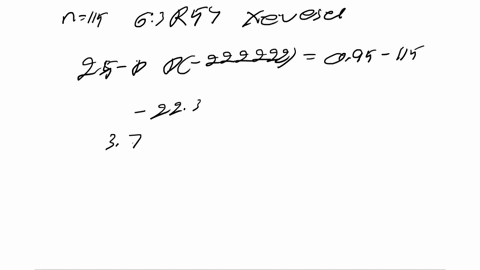 n=115 6.3R57
25-0 0(-222222) = 0.95-115
-22.3
3.7